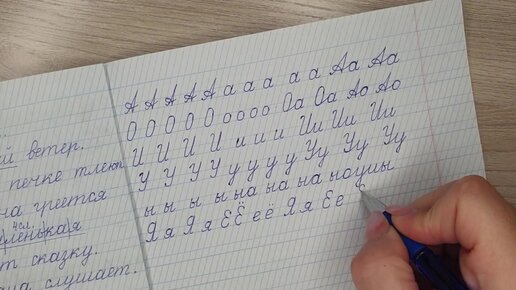 й ветер.
печке тлеют
на греется
4 сл.
ленькая
т сказку.
на слушает.
А А А А А а а а а а Аа Аа
О О О О О о о о о Оа Оа Ао Ао
И И И И и и и Ии Ии Ии
У У У У у у у у Уу Уу Уу
ы ы ы ы на на на но уны
Я я Я я Е Ё е ё Я я Ё е